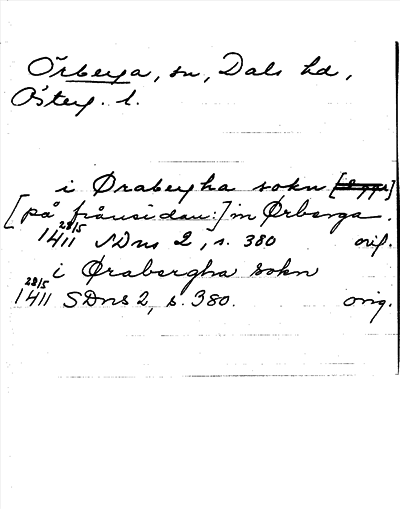 Örberga, sn, Dals hd,
Österg. l.
i Ørabergha sokn
[på frånsidan:] in Ørberga.
28/5 1411 SDns 2, s. 380 orig.
i Ørabergha sokn
28/5 1411 SDns 2, s. 380. orig.